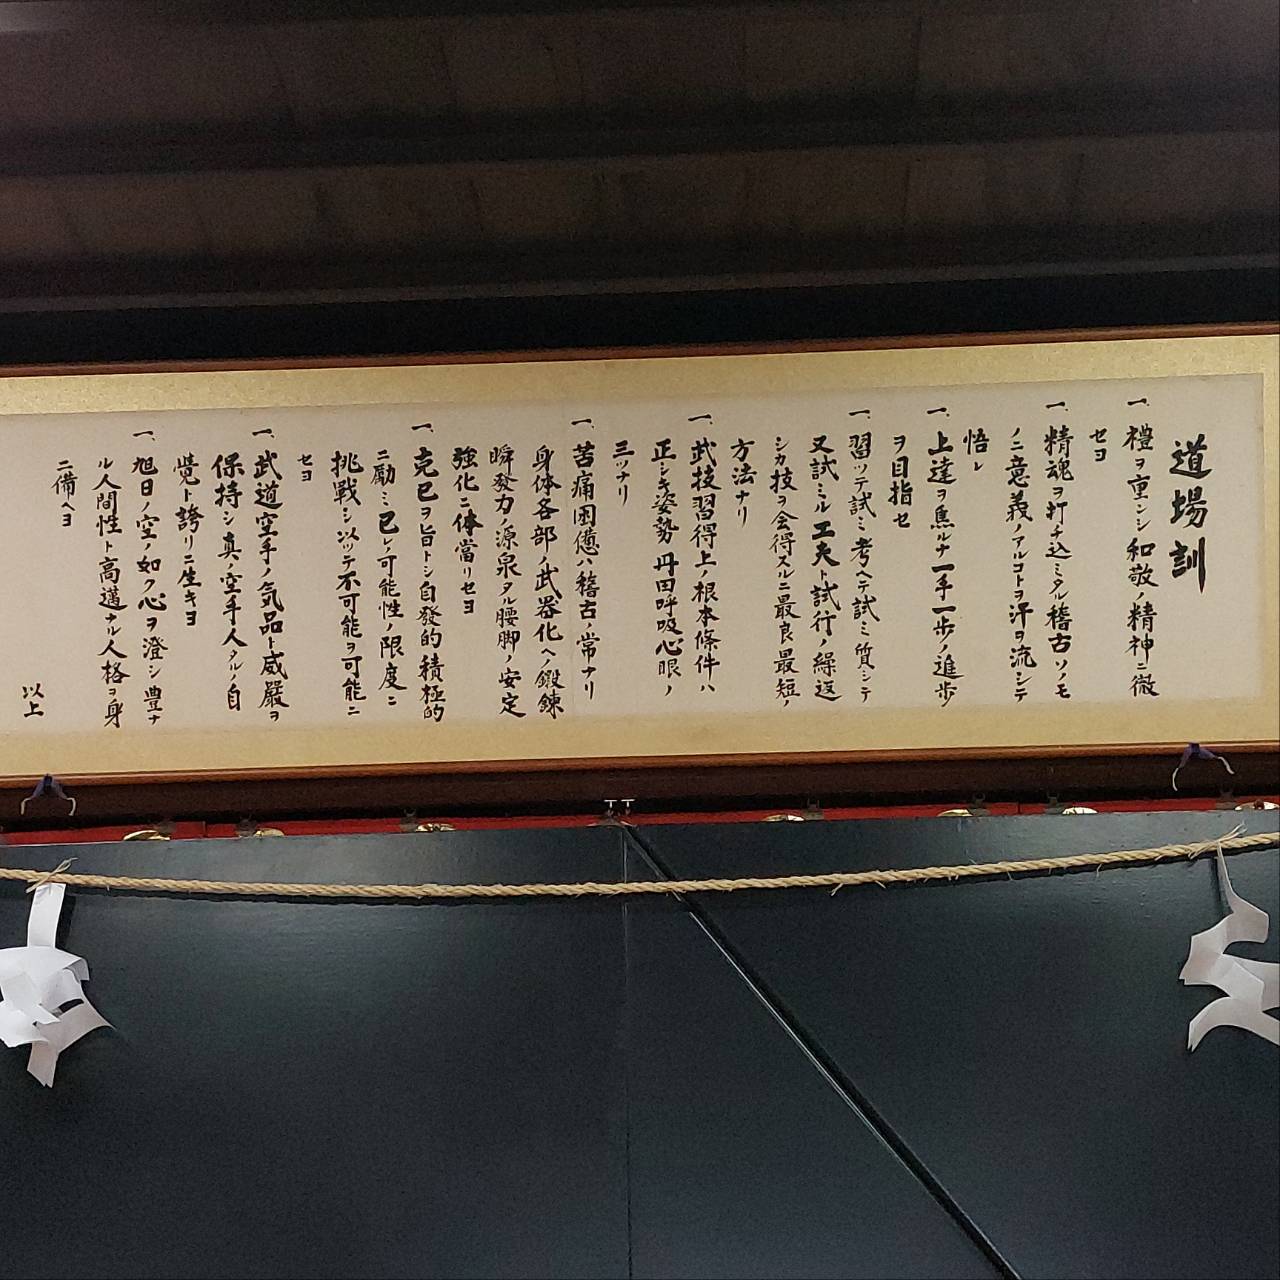 道場訓
一、禮ヲ重ンシ和敬ノ精神ニ徹
セヨ
一、精魂ヲ打チ込ミタル稽古ソノモ
ノニ意義ノアルコトヲ汗ヲ流シテ
悟レ
一、上達ヲ焦ルナ一手一歩ノ進歩
ヲ目指セ
一、習ッテ試ミ考ヘテ試ミ質シテ
又試ミル工夫ト試行ノ繰返
シカ技ヲ会得スルニ最良最短ノ
方法ナリ
一、武技習得上ノ根本條件ハ
正シキ姿勢丹田呼吸心眼ノ
三ツナリ
一、苦痛困憊ハ稽古ノ常ナリ
身体各部ノ武器化ヘノ鍛錬
瞬發力ノ源泉タル腰脚ノ安定
強化ニ体當リセヨ
一、克己ヲ旨トシ自發的積極的
ニ励ミ已レノ可能性ノ限度ニ
挑戦シ以ッテ不可能ヲ可能ニ
セヨ
一、武道空手ノ気品ト威嚴ヲ
保持シ真ノ空手人タルノ自
覺ト誇リニ生キヨ
一、旭日ノ空ノ如ク心ヲ澄シ豊ナ
ル人間性ト高邁ナル人格ヲ身
ニ備ヘヨ
以上